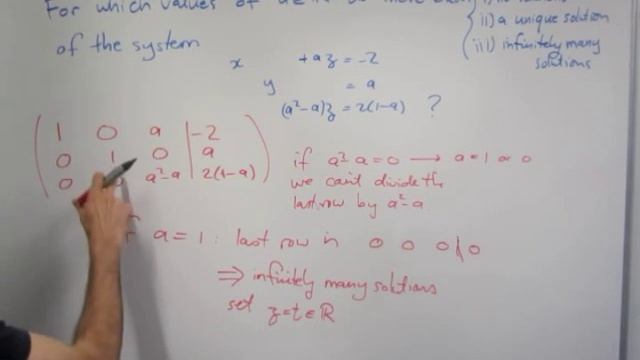 For which values of a ∈ ℝ do there exist
of the system
ii) a unique solution
iii) infinitely many
solutions
x + az = -2
y = a
(a²-a)z = 2(1-a) ?
1 0 a | -2
0 1 0 | a
0 0 a²-a | 2(1-a)
if a²-a=0 → a=1 or 0
we can't divide the
last row by a²-a
a = 1: last row is 0 0 0 | 0
⇒ infinitely many solutions
set z=t∈ℝ